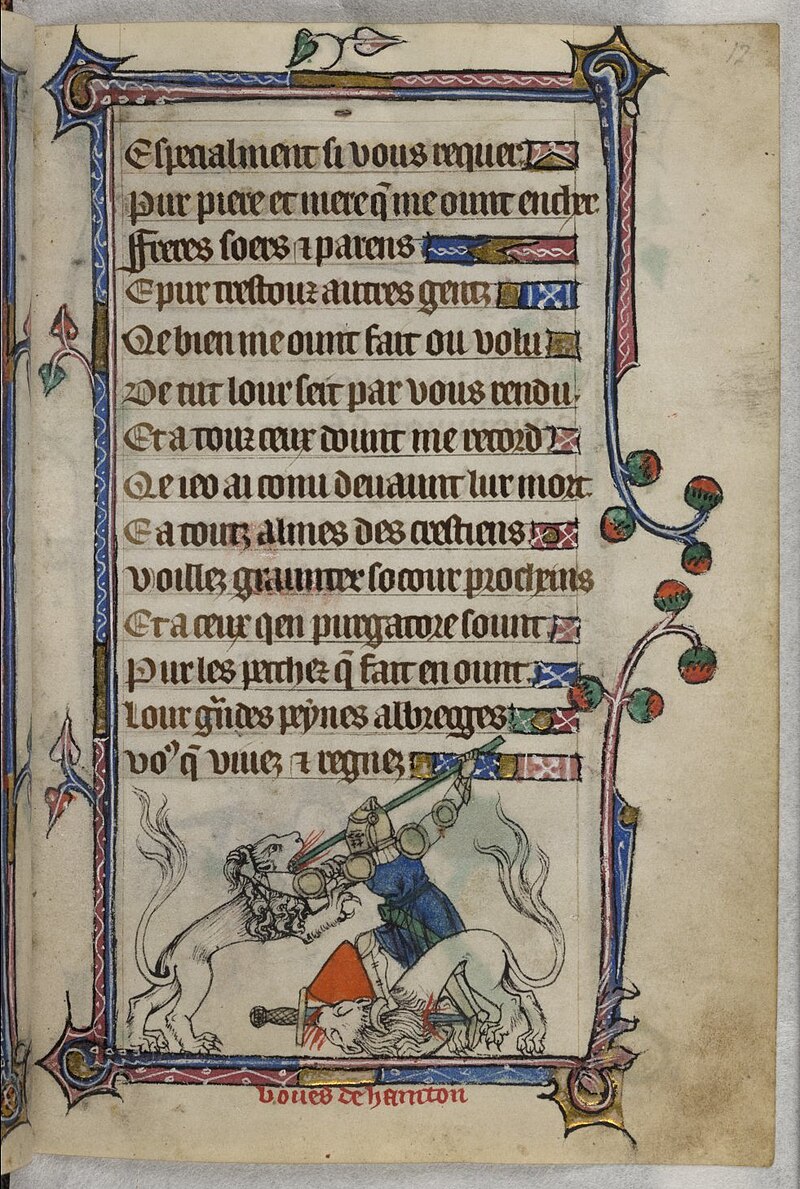 12
Especialment si vous requer
Pur piere et mere q̄ me ount encher
Freres soers ⁊ parens
E pur trestouz autres gentz
Qe bien me ount fait ou volu
De tut lour seit par vous rendu.
Et a touz ceux dount me record
Qe ieo ai conu deuaunt lur mort
E a toutz almes des crestiens
voillez graunter socour procheins
Et a ceux qen purgatore sount
Pur les pecchez q̄ fait en ount.
lour g̃ndes peynes abregges
voꝰ q̄ viuez ⁊ regnez
boues de hamton